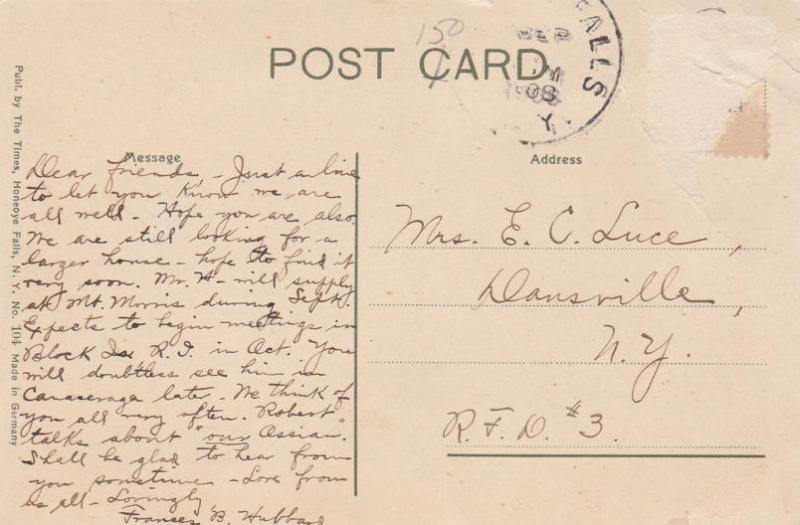 150
POST CARD
FALLS
SEP
M
1908
Y.
Publ. by The Times, Honeoye Falls, N. Y. No. 104 Made in Germany
Message
Address
Dear friends, - Just a line
to let you know we are
all well - Hope you are also.
We are still looking for a
larger house - hope to find it
very soon. Mr. H - will supply
at Mt. Morris during Sept.
Expects to begin meetings in
Block Is. R.I. in Oct. You
will doubtless see him in
Canaseraga later. We think of
you all very often. Robert
talks about "our Ossian."
Shall be glad to hear from
you sometime - Love from
us all - Lovingly
Frances B. Hubbard
Mrs. E. C. Luce,
Dansville,
N.Y.
R.F.D. #3.